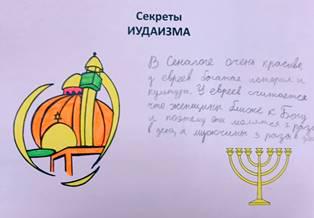 Секреты
ИУДАИЗМА
В Сенагоге очень красиво
у евреев богатая история и
культура. У евреев считается
что женщины ближе к Богу
и поэтому они молятся 2 раза
в день, а мужчины 3 раза в